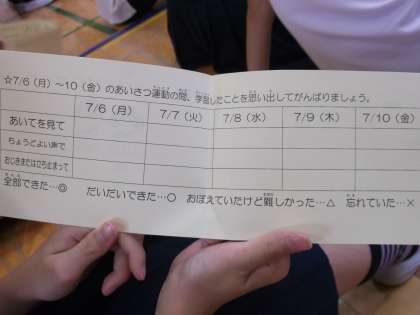 ☆7/6（月）～10（金）のあいさつ運動の間、学習したことを思い出してがんばりましょう。
7/6（月） 7/7（火） 7/8（水） 7/9（木） 7/10（金）
あいてを見て
ちょうどよい声で
おじぎまたは立ち止まって
全部できた…◎ だいだいできた…○ おぼえていたけど難しかった…△ 忘れていた…×